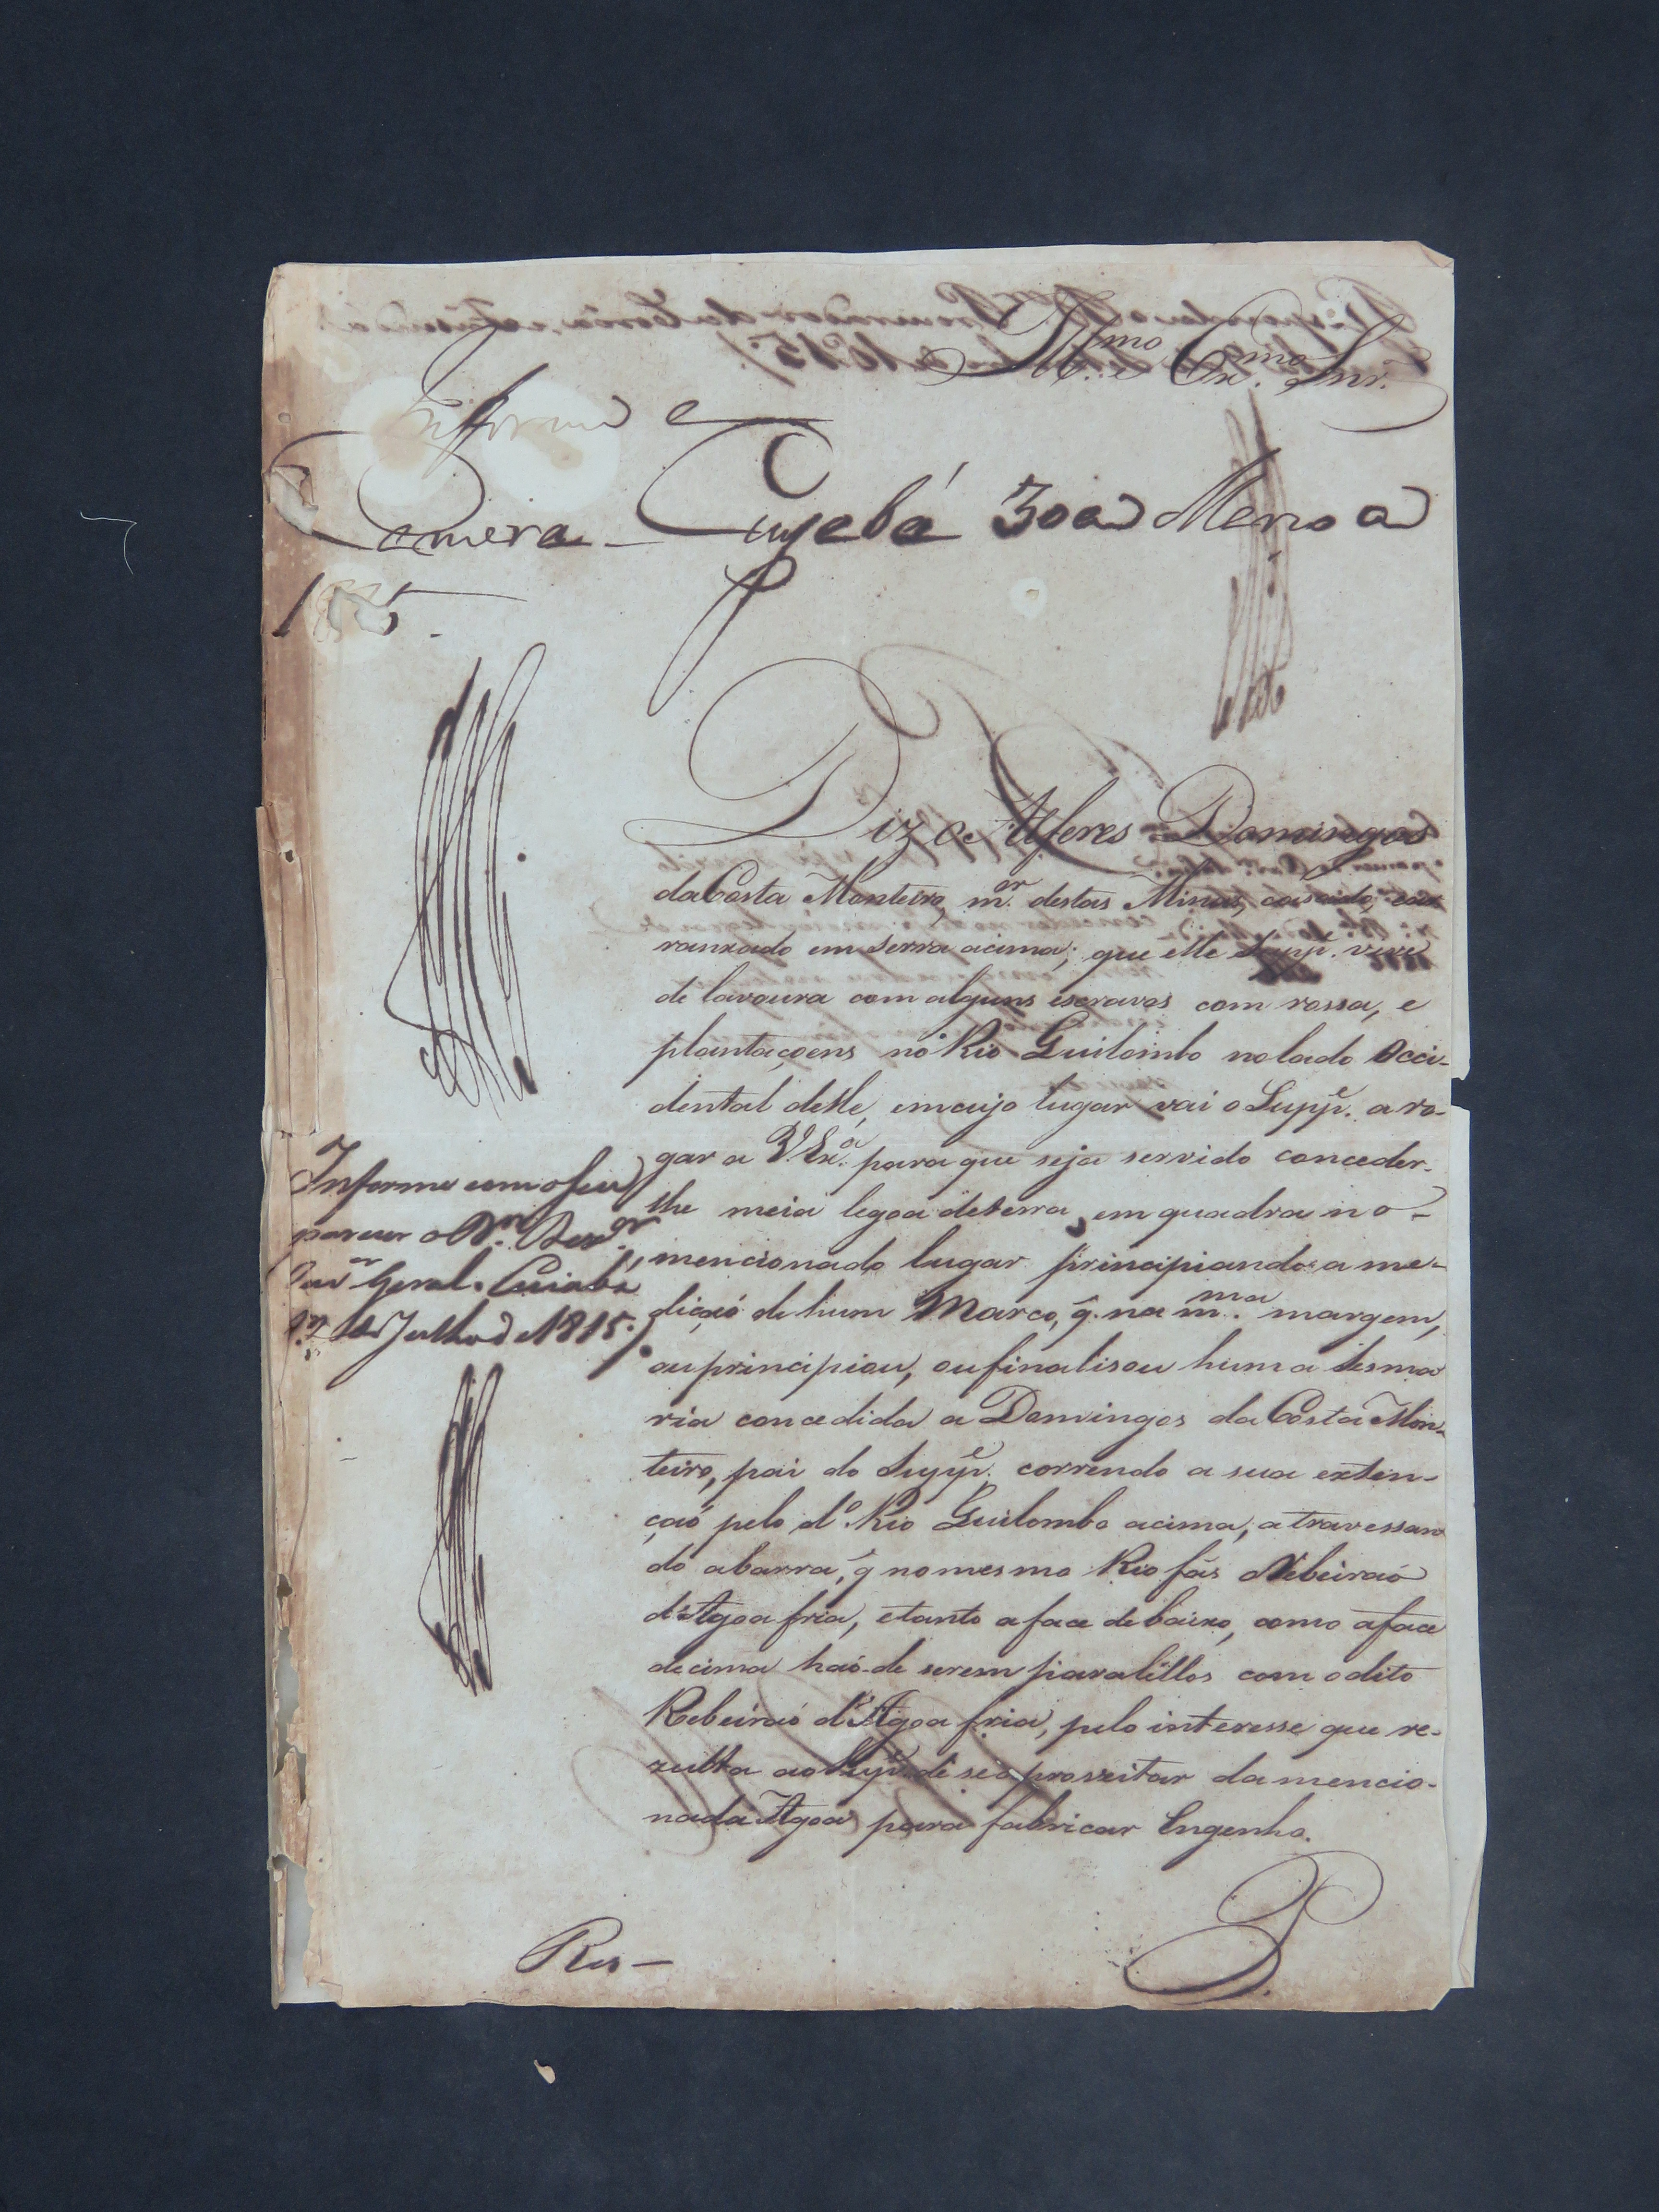 Ill.mo e Ex.mo Snr.
Informe a
Camera – Cuyabá 30 de Março de
1815.
Diz o Alferes Domingos
da Costa Monteiro, m.or destas Minas, casado, e ar
ranxado em serra acima; que elle Supp.e vive
de lavoura com alguns escravos com rossa, e
plantaçoens no Rio Guilombo no lado Occi-
dental delle, em cujo lugar vai o Supp.e a ro-
gar a V.Ex.a para que seja servido conceder-
lhe meia legoa de terra em quadra no-
mencionado lugar principiando a me-
dição de hum Marco, q̃ na m.ma margem,
ou principiou, ou finalisou huma sesma
ria concedida a Domingos da Costa Mon-
teiro, pai do Supp.e correndo a sua exten-
çaõ pelo d.o Rio Guilombo acima, atravessan
do a barra, q̃ no mesmo Rio fás o Ribeiraõ
d'Agoa fria, e tanto a face de baixo, como a face
de cima haõ-de serem paralellos com o dito
Rebeiraõ d'Agoa fria, pelo interesse que re-
zulta ao Supp.e de se aproveitar da mencio-
nada Agoa para fabricar Engenho.
P.
Informe com o seu
parecer o D.or Dez.or
Ouv.or Geral. Cuiabá
de Julho de 1815.